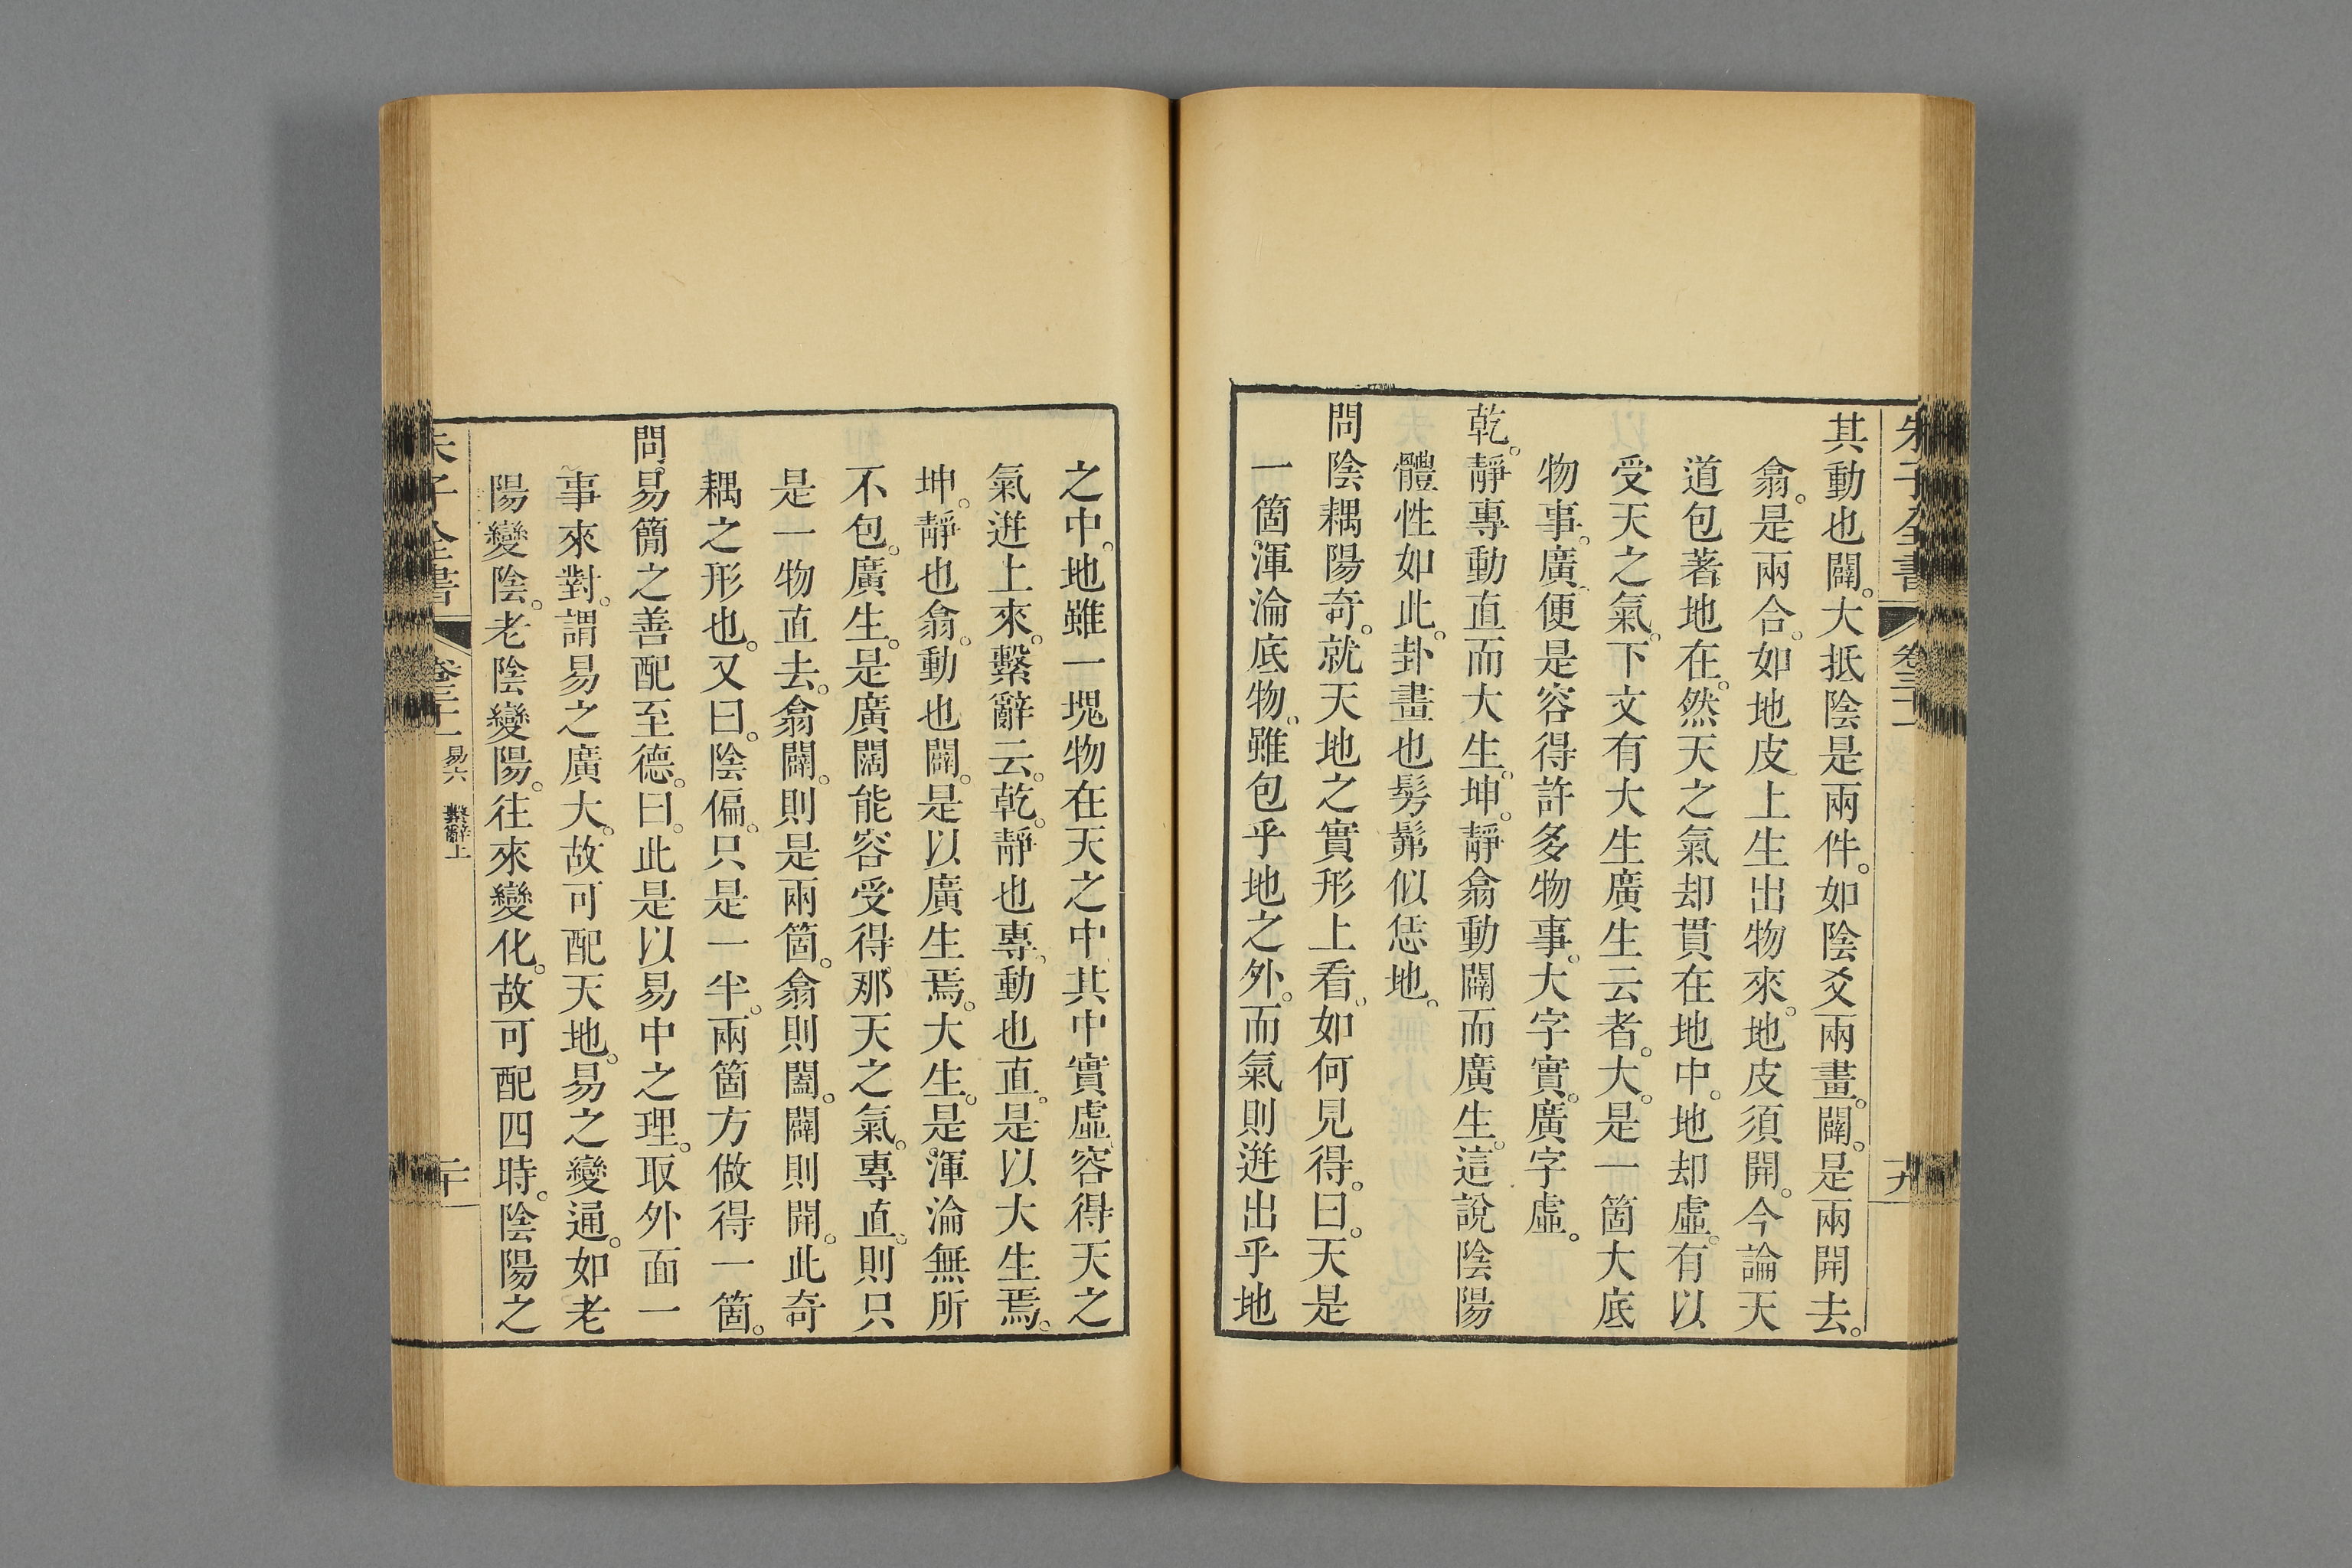 朱子全書 卷三十一 十九
其動也闢。大抵陰是兩件。如陰爻兩畫。闢。是兩開去。
翕。是兩合。如地皮上生出物來。地皮須開。今論天
道包著地在。然天之氣却貫在地中。地却虛。有以
受天之氣。下文有大生廣生云者。大。是一箇大底
物事。廣。便是容得許多物事。大字實。廣字虛。
乾。靜專動直而大生。坤。靜翕動闢而廣生。這說陰陽
體性如此。卦畫也髣髴似恁地。
問陰耦陽奇。就天地之實形上看。如何見得。曰。天是
一箇渾淪底物。雖包乎地之外。而氣則迸出乎地
之中。地雖一塊物在天之中。其中實虛。容得天之
氣迸上來。繫辭云。乾。靜也專。動也直。是以大生焉。
坤。靜也翕。動也闢。是以廣生焉。大生。是渾淪無所
不包。廣生。是廣闊能容受得那天之氣。專直。則只
是一物直去。翕闢。則是兩箇。翕則闔。闢則開。此奇
耦之形也。又曰。陰偏。只是一半。兩箇方做得一箇。
問。易簡之善配至德。曰。此是以易中之理。取外面一
事來對。謂易之廣大。故可配天地。易之變通。如老
陽變陰。老陰變陽。往來變化。故可配四時。陰陽之
朱子全書 卷三十一 易六 繫辭上 二十